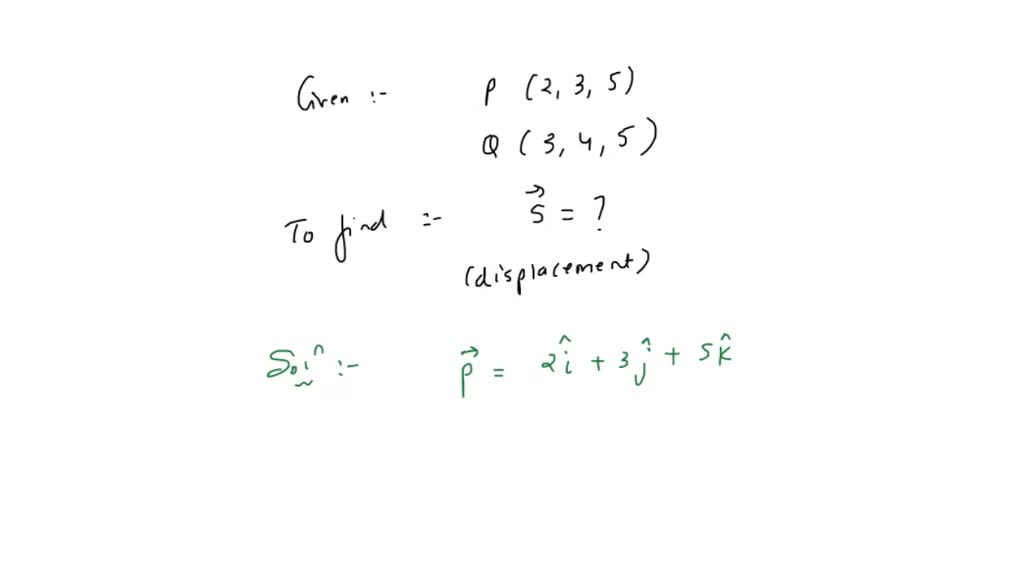 Given :- P (2, 3, 5)
Q (3, 4, 5)
To find :- s⃗ = ?
(displacement)
Solⁿ :- p⃗ = 2î + 3ĵ + 5k̂